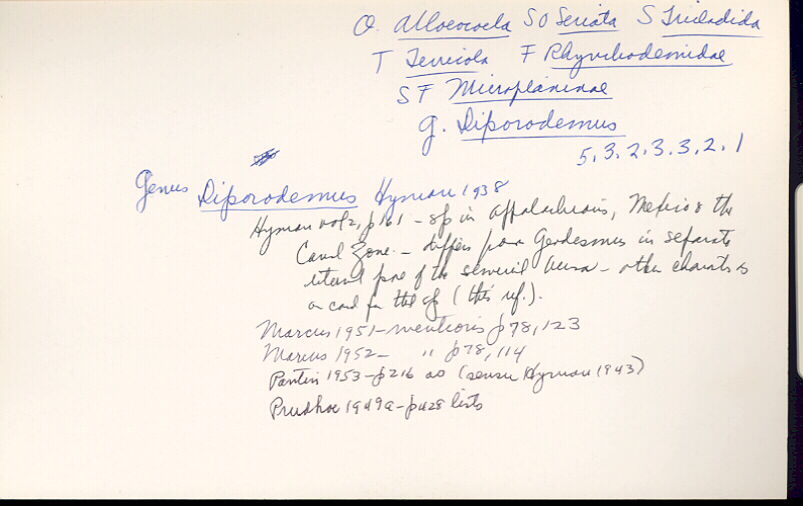 O. Alloeocoela SO Seriata S Tricladida
T Terricola F Rhynchodemidae
SF Microplaninae
g. Diporodemus
5, 3, 2, 3, 3, 2, 1
Genus Diporodemus Hyman 1938
Hyman vol 2, p161 - sp in Appalachians, Mexico & the
Canal Zone - differs from Geodesmus in separate
external pore of the seminal bursa - other characts
on card for the sp (this ref.).
Marcus 1951 - mentions p78, 123
Marcus 1952 - " p78, 114
Pantin 1953 - p216 as (sensu Hyman 1943)
Prudhoe 1949a - p428 lists